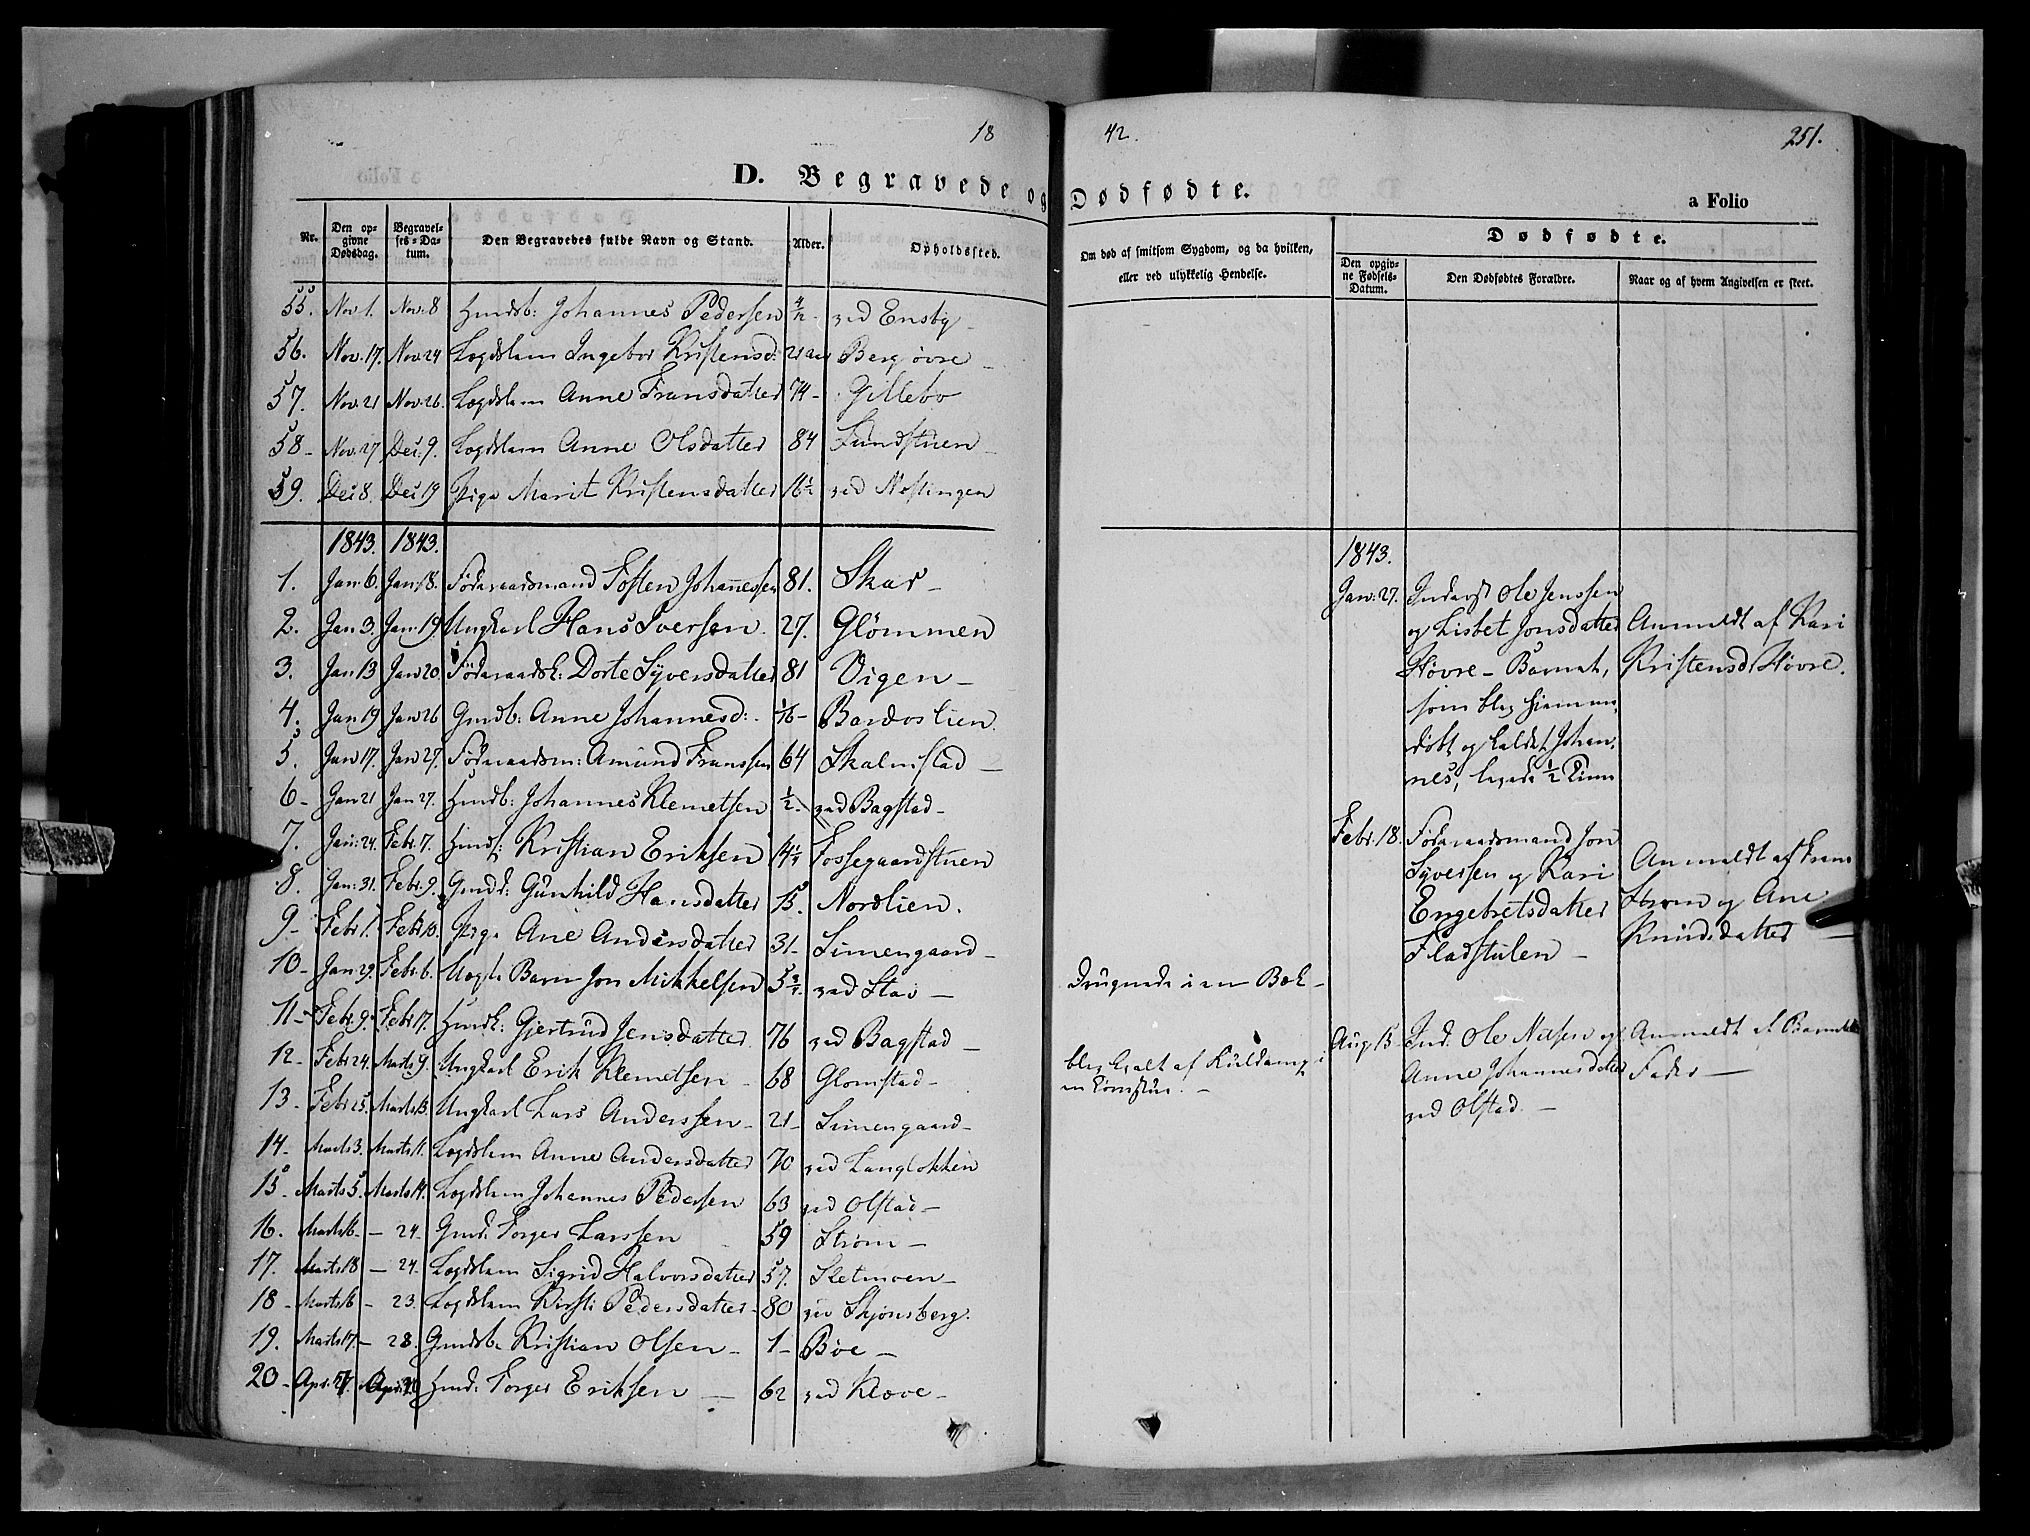 18 42. 251.
D. Begravede og Dødfødte. a Folio
Nr. Den opgivne Dødsdag. Begravelses-Datum. Den Begravedes fulde Navn og Stand. Alder. Opholdssted. Om død af smitsom Sygdom, og da hvilken, eller ved ulykkelig Hendelse.
Dødfødte.
Den opgivne Fødsels-Datum. Den Dødfødtes Forældre. Naar og af hvem Angivelsen er skeet.
55. Nov 1. Nov: 8 Huusb: Johannes Pedersen 4/12 - ved Ensby -
56. Nov. 17. Nov: 24 Lægdslem Ingebor Kristensd: 21 aar Berg øvre -
57. Nov: 21 Nov: 26. Lægdslem Anne Fransdatter 74 - Gillebo
58 - Nov: 27 Dec: 9. Lægdslem Anne Olsdatter 84 Sundstuen -
59. Dec 8. Dec 19 Pige Marit Kristensdatter 16½ ved Nestingen
1843. 1843.
1. Jan: 6. Jan: 18. Føderaadsmand Tosten Johannessen 81. Skar -
2. Jan 3. Jan: 19 Ungkarl Hans Iversen. 27. Glømmen
3. Jan 13 Jan 20. Føderaadsk: Dorte Syversdatter 81 Vigen -
4. Jan 19 Jan 26 Gmdb: Anne Johannesd: - Bardoslien.
5. Jan 17. Jan 27. Føderaadsm: Amund Franssen 64 Skalmstad -
6 - Jan 21 Jan 27. Huusb: Johannes Klemetsen ½ - ved Bagstad -
7. Jan: 24. Febr. 7. Kristian Eriksen 14¼ Fossegaardstuen
8. Jan: 31. Febr. 9. Gunhild Hansdatter 15. Nordlien.
9 - Febr 1. Febr 10. Pige Ane Andersdatter 31 - Simengaard -
10 - Jan 29. Febr. 6. Barn Jon Mikkelsen 5¾ ved Stav - Drugnede i en Bæk -
11 - Febr. 9. Febr 17. Huusk: Gjertrud Jensdatter 76 ved Bagstad -
12 - Febr 24. Marts 9. Ungkarl Erik Klemetsen - 68 Glomstad - blev qvalt af Kuldamp i
en Tørrstue. -
13. Febr 25. Marts 13. Ungkarl Lars Anderssen - 21 - Simengaard -
14 - Marts 3. Marts 11. Lægdslem Anne Andersdatter 70 ved Langlokken
15 - Marts 5. Marts 14. Lægdslem Johannes Pedersen 63 ved Olstad -
16. Marts 16 - - 24 - Gmd: Torger Larssen 59 Strøm -
17. Marts 18 - 24. Lægdslem Sigrid Halvorsdatter 57. Sletmoen -
18 - Marts 16 - 23. Lægdslem Kirsti Pedersdatter - 80 ved Skjønsberg.
19. Marts 17. - 28. Gmdsb. Kristian Olsen - 1 - Bøe -
20 - Apr: 27. Huusm: Torger Eriksen - 62 ved Kløve -
1843.
Jan: 27. Inderst Ole Jenssen
og Lisbet Jonsdatter Anmeldt af Kari
Høvre - Barnet, Kristensd Høvre.
som blev hjemme
døbt og kaldet Johan-
nes, levede ½ Time
Febr. 18. Føderaadsmand Jon
Syversen og Kari Anmeldt af
Engebretsdatter Strøm og Ane
Fladstulen - Knudsdatter -
Aug 15 - Ind: Ole Nilsen og Anmeldt af Barnets
Anne Johannesdatter Fader -
ved Olstad. -